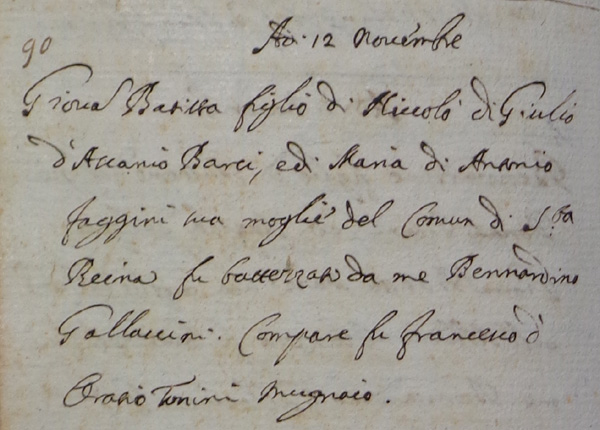 90
Adi 12 Novembre
Giova Batista figlio di Niccolò di Giulio
d'Ascanio Barci, e di Maria di Antonio
faggini sua moglie del Comun di S.ta
Reina fu battezzato da me Bennardino
Gallaccini. Compare fu francesco d
Orazio Tonini Mugnaio.